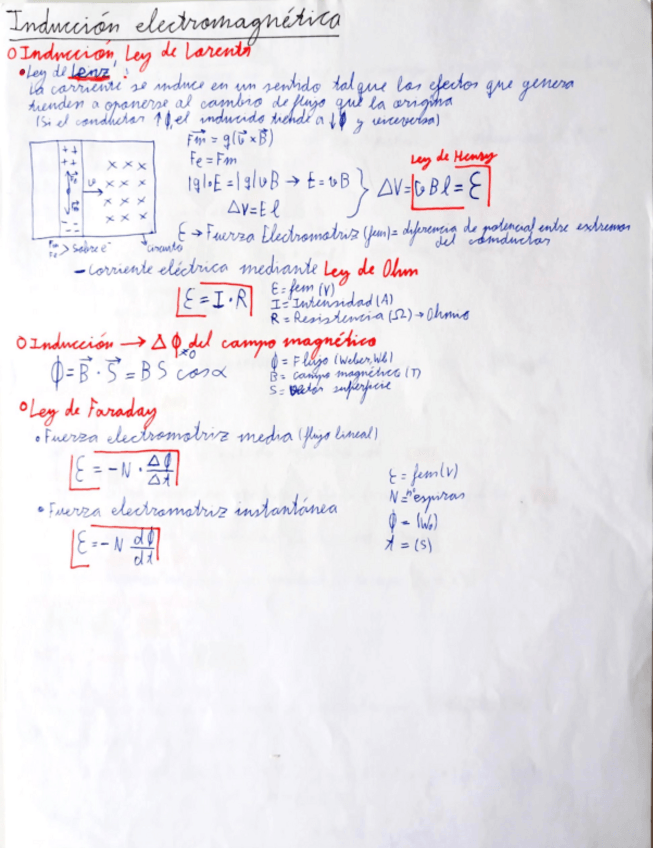 Inducción electromagnética
Inducción, Ley de Lorentz
• Ley de Lenz:
La corriente se induce en un sentido tal que los efectos que genera
tienden a oponerse al cambio de flujo que la origina
(Si el conductor ↑ϕ, el inducido tiende a ↓ϕ y viceversa)
Fm = q(v × B)
Fe = Fm
|q|·E = |q|vB → E = vB
ΔV = E l
Ley de Henry
ΔV = v B l = ε
+ +
+ +
- -
- -
× × ×
× × ×
× × ×
× × ×
v
Fm
Fe > sobre e⁻
circuito
ε → Fuerza Electromotriz (fem) = diferencia de potencial entre extremos
del conductor
- Corriente eléctrica mediante Ley de Ohm
ε = I · R
ε = fem (V)
I = Intensidad (A)
R = Resistencia (Ω) → Ohmio
Inducción → Δϕ del campo magnético
ϕ = B · S = B S cos α
ϕ = Flujo (Weber, Wb)
B = campo magnético (T)
S = vector superficie
Ley de Faraday
• Fuerza electromotriz media (flujo lineal)
ε = -N · Δϕ/Δt
• Fuerza electromotriz instantánea
ε = -N dϕ/dt
ε = fem (V)
N = nº espiras
ϕ = (Wb)
t = (s)